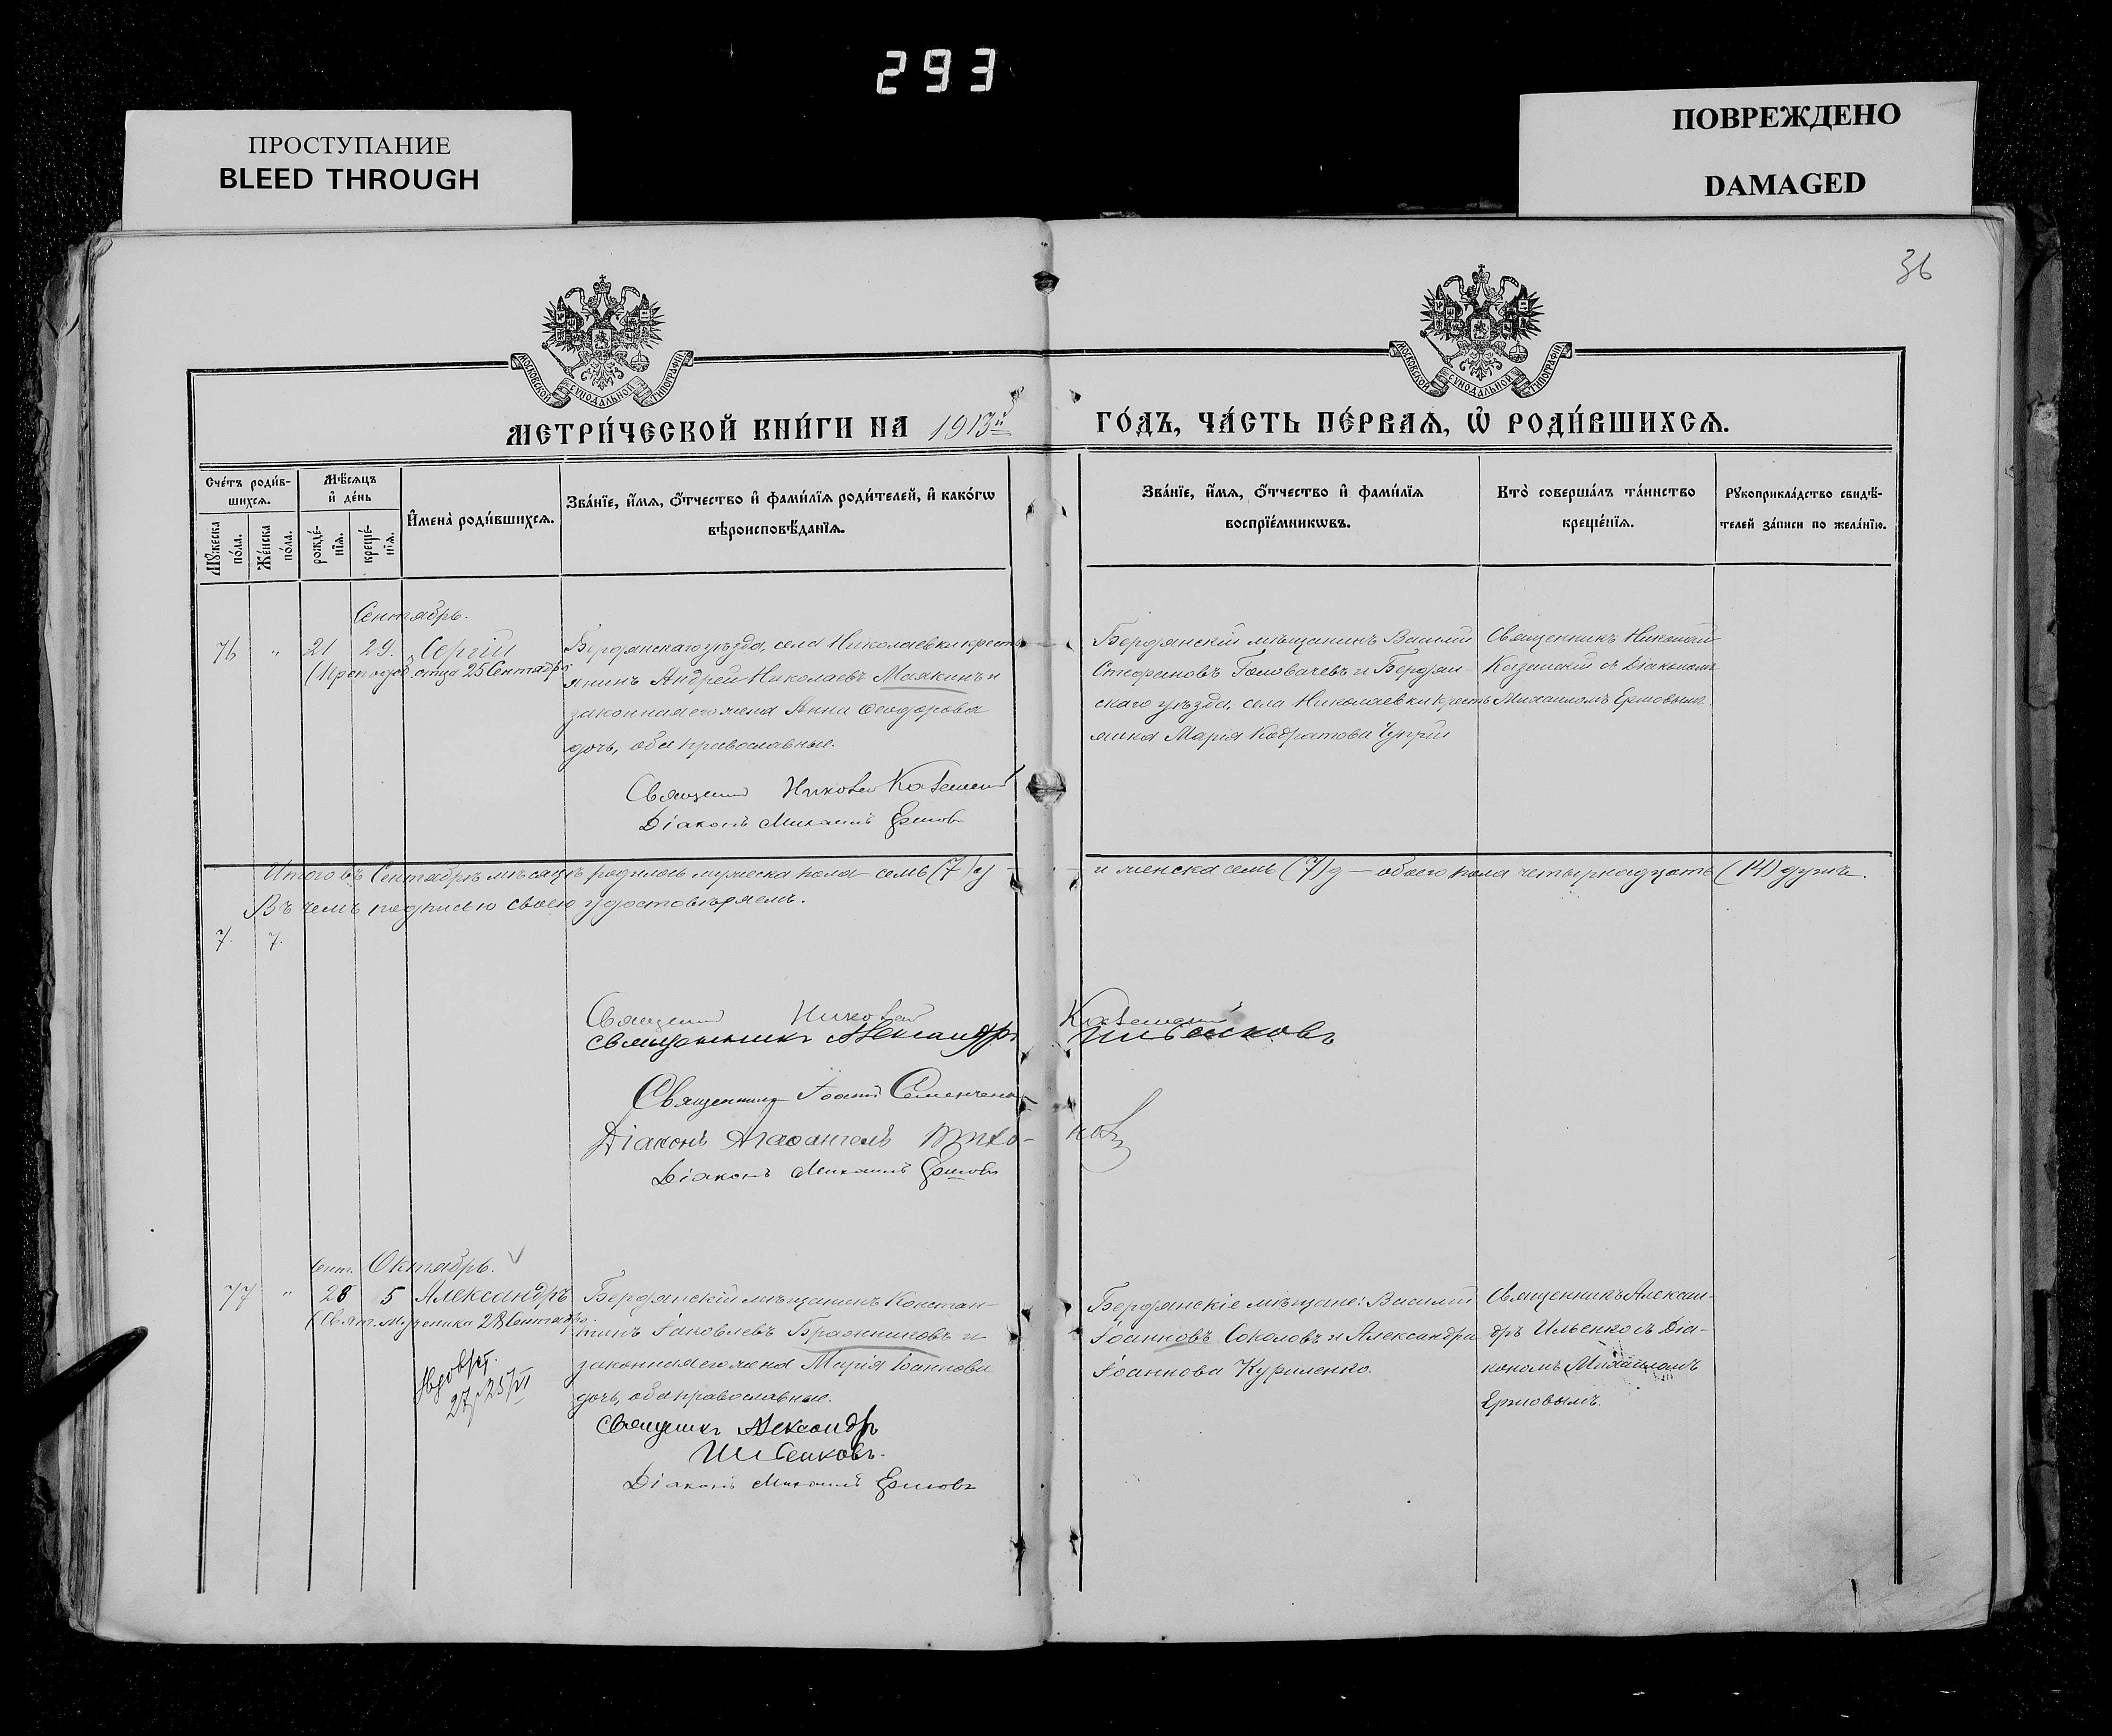 293
ПРОСТУПАНИЕ
BLEED THROUGH
ПОВРЕЖДЕНО
DAMAGED
36
МОСКОВСКОЙ СѴНОДАЛЬНОЙ ТИПОГРАФІИ
МОСКОВСКОЙ СѴНОДАЛЬНОЙ ТИПОГРАФІИ
МЕТРИ́ЧЕСКОЙ КНИ́ГИ НА 1913й ГО́ДЪ, ЧА́СТЬ ПЕ́РВАѦ, Ѡ҆ РОДИ́ВШИХСѦ.
Сче́тъ роди́в-
шихсѧ.
Мѣ́сѧцъ
и҆ де́нь
И҆мена̀ роди́вшихсѧ.
Зва́нїе, и҆́мѧ, ѻ҆́тчество и҆ фами́лїѧ роди́телей, и҆ како́гѡ
вѣроисповѣ́данїѧ.
Зва́нїе, и҆́мѧ, ѻ҆́тчество и҆ фами́лїѧ
воспрїе́мникѡвъ.
Кто̀ соверша́лъ та́инство
креще́нїѧ.
Рꙋкоприкла́дство свидѣ́-
телей за́писи по жела́нїю.
Мꙋ́жеска
по́ла.
Же́нска
по́ла.
рожде́-
нїѧ.
креще́-
нїѧ.
Сентябрь.
76 " 21 29. Сергій
(Преподоб. отца 25 Сентября)
Бердянскаго уѣзда, села Николаевки кресть-
янинъ Андрей Николаевъ Маякинъ и
законная его жена Анна Ѳеодорова
дочь, оба православные.
Священникъ Николай Каземскій
Діаконъ Михаилъ Ершовъ
Бердянскій мѣщанинъ Василій
Стефановъ Головачевъ и Бердян-
скаго уѣзда, села Николаевки кресть-
янка Марія Кодратова Чуприн
Священникъ Николай
Каземскій съ Діакономъ
Михаиломъ Ершовымъ.
Итого въ Сентябрѣ мѣсяцѣ родилось мужеска пола – семь (7) д – и женска семь (7) д – обоего пола четырнадцать (14) душъ.
Въ чемъ подписью своею удостовѣряемъ.
7. 7.
Священникъ Николай Каземскій
Священникъ Александръ Ильенковъ
Священникъ Іоаннъ Семенченко
Діаконъ Агаѳангелъ
Діаконъ Михаилъ Ершовъ
Сент. Октябрь.
77 " 28 5 Александръ
(Свят. Мученика 28 Сентября.
27/ 25/VI
Бердянскій мѣщанинъ Констан-
тинъ Іаковлевъ Бражниковъ и
законная его жена Марія Іоаннова
дочь, оба православные.
Священникъ Александръ
Ильенковъ.
Діаконъ Михаилъ Ершовъ
Бердянскіе мѣщане: Василій
Іоанновъ Соколовъ и Александра
Іоаннова Куриленко.
Священникъ Алексан-
дръ Ильенко съ Діа-
кономъ Михаиломъ
Ершовымъ.